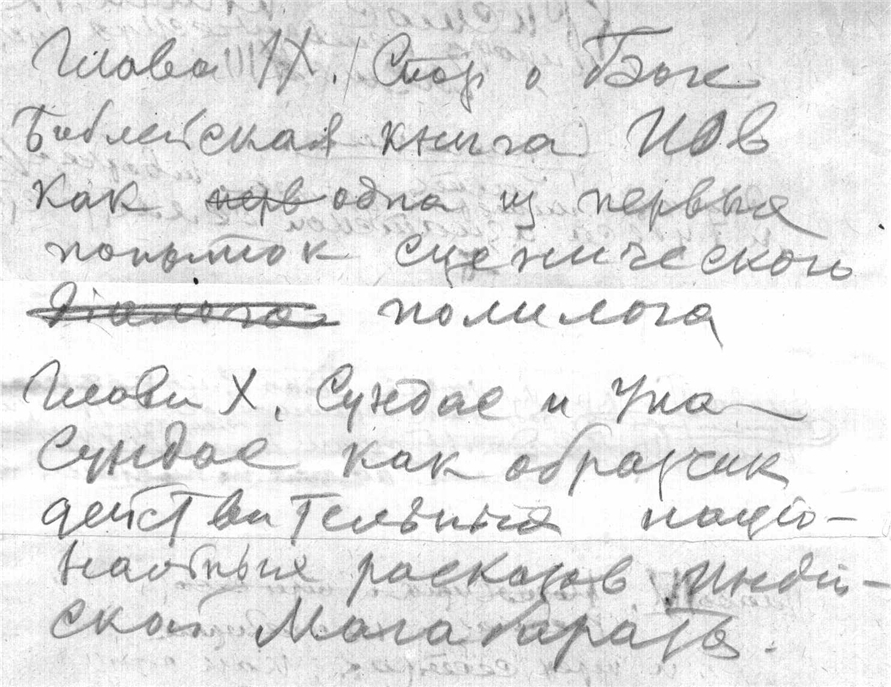 Глава IX. Спор о Боге
Библейская книга ИОВ
Как перв одна из первых
попыток сценического
Диалога полилога
Глава X. Сундас и Упа
Сундас как образчик
действительных нацио-
нальных расказов индий-
ской Магабараты.